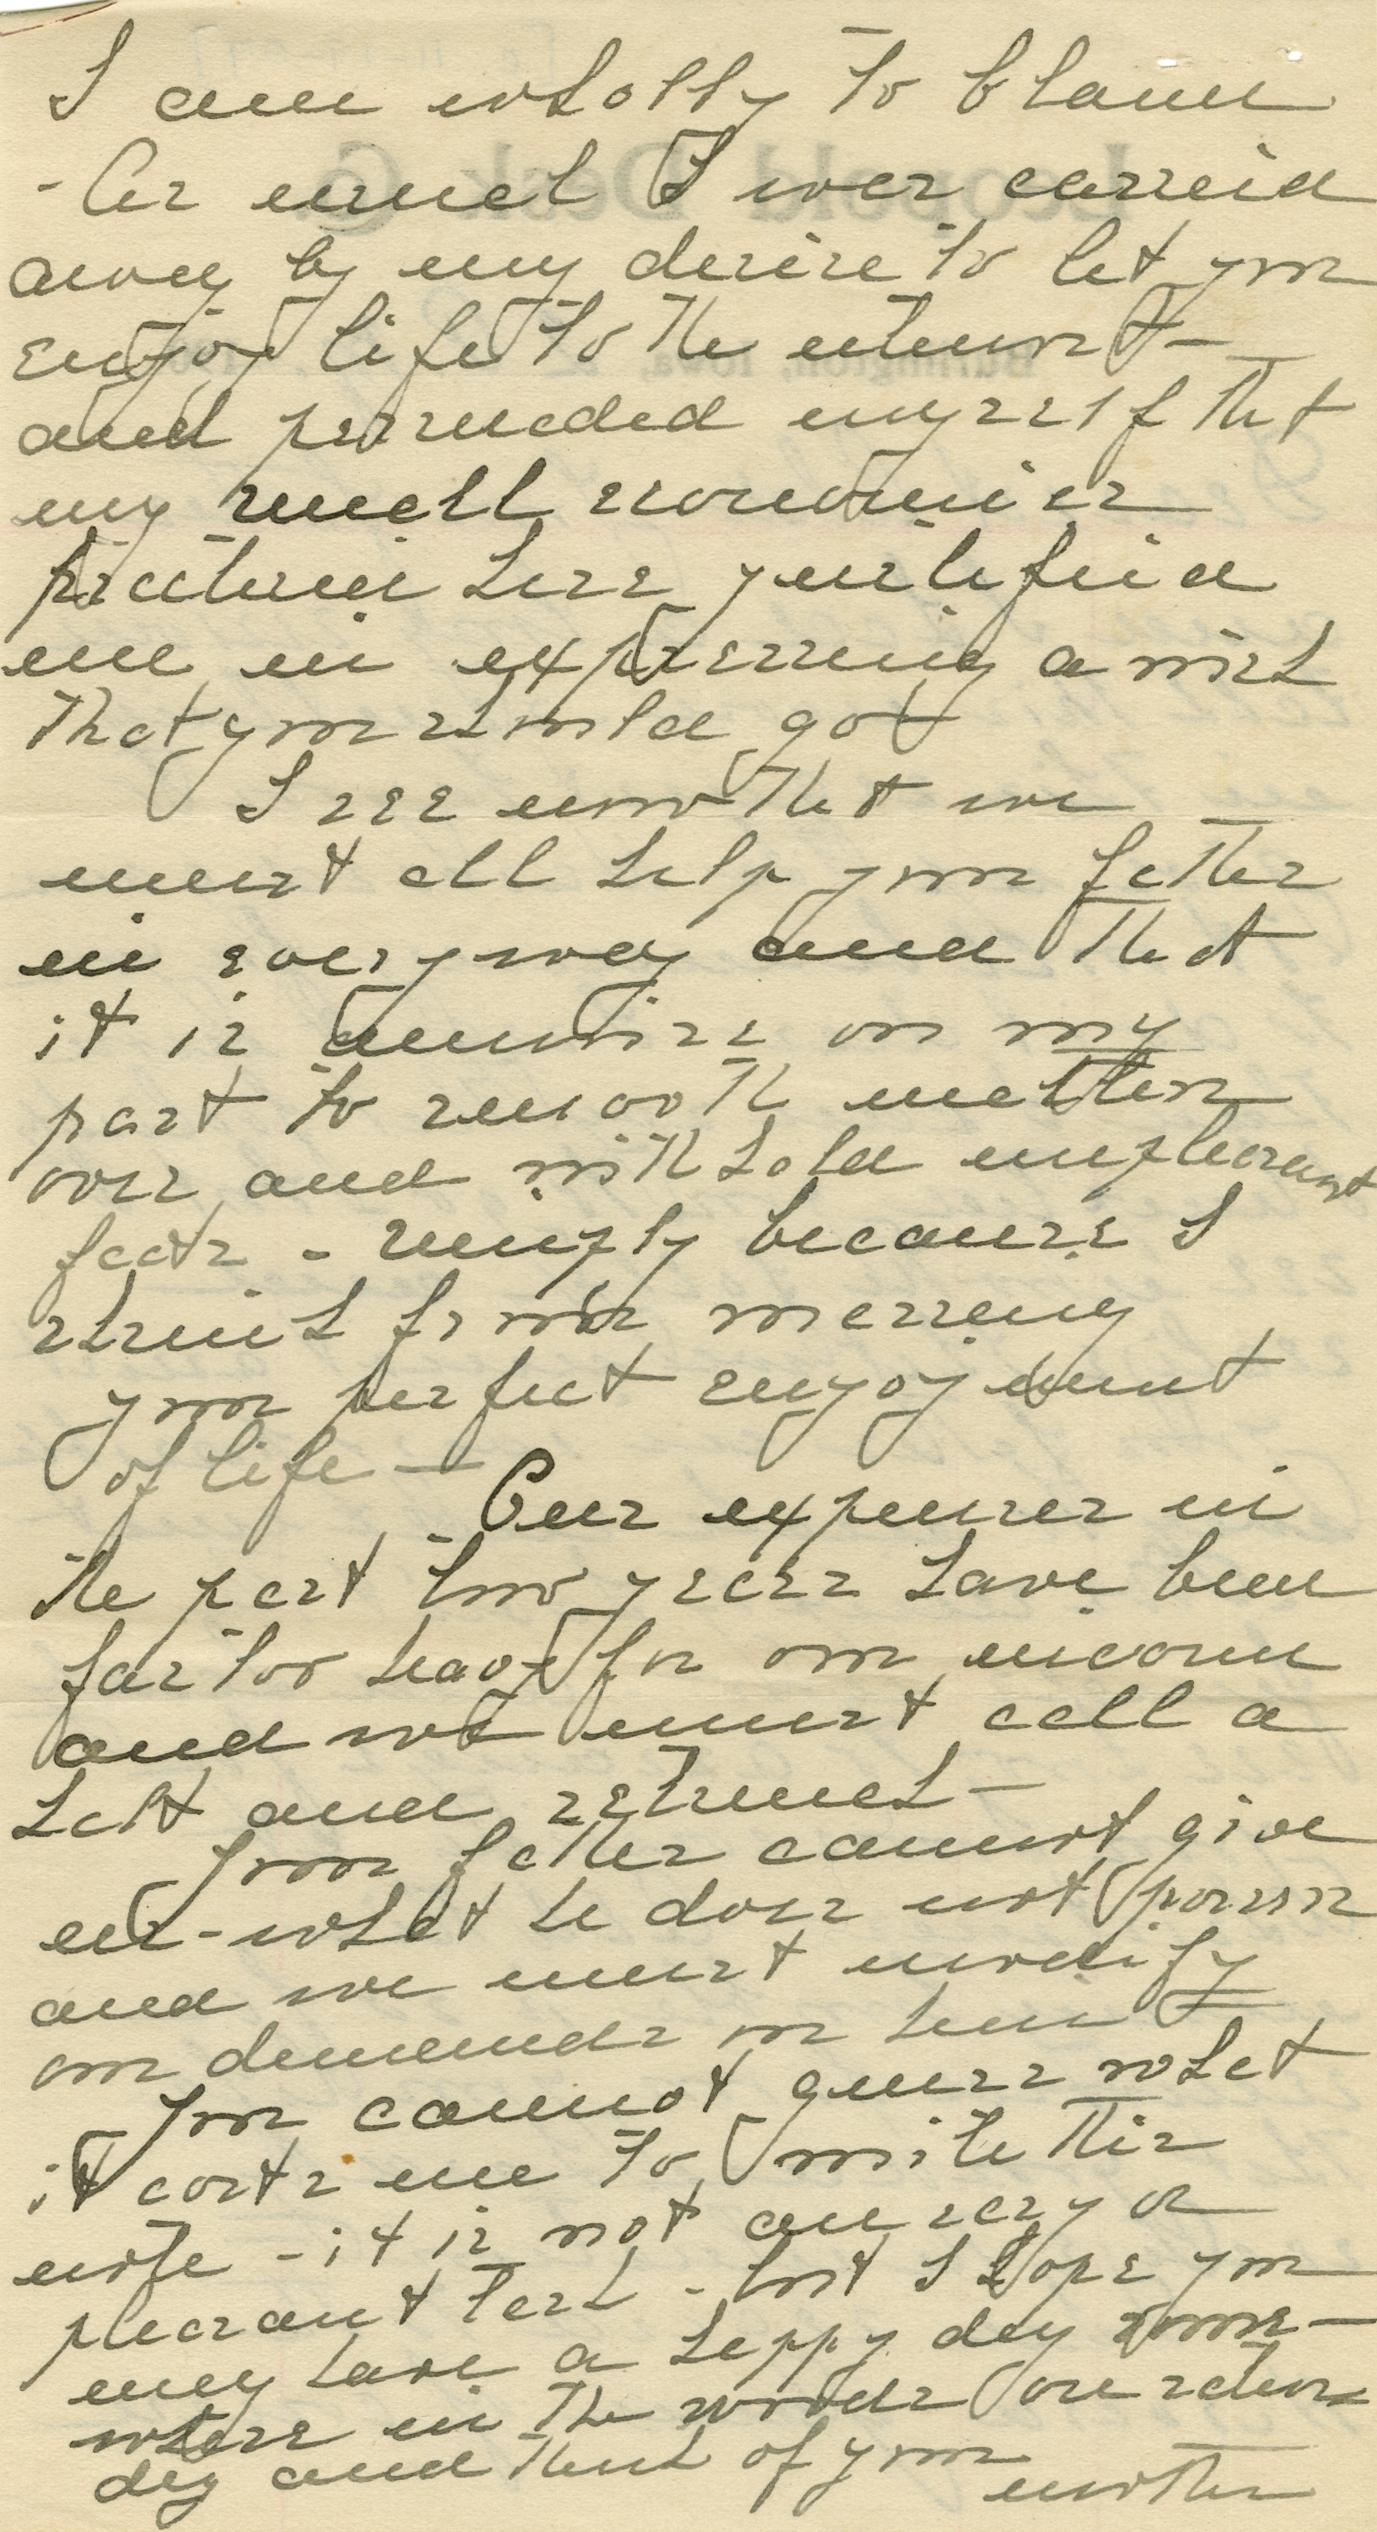 I am wholly to blame
- As usual I was carried
away by my desire to let you
enjoy life to the utmost -
and persuaded myself that
my small economies
practised here justified
me in expressing a wish
that you should go
I see now that we
must all help your father
in every way and that
it is unwise on my
part to smooth matters
over and withhold unpleasant
facts - simply because I
shrink from marring
your perfect enjoyment
of life -
Our expenses in
the past two years have been
far too heavy for our income
and we must call a
halt and retrench -
Your father cannot give
us - what he does not possess
and we must modify
our demands on him
You cannot guess what
it costs me to write this
note - it is not an easy or
pleasant task - but I hope you
may have a happy day some-
where in the woods on
day and think of your
mother